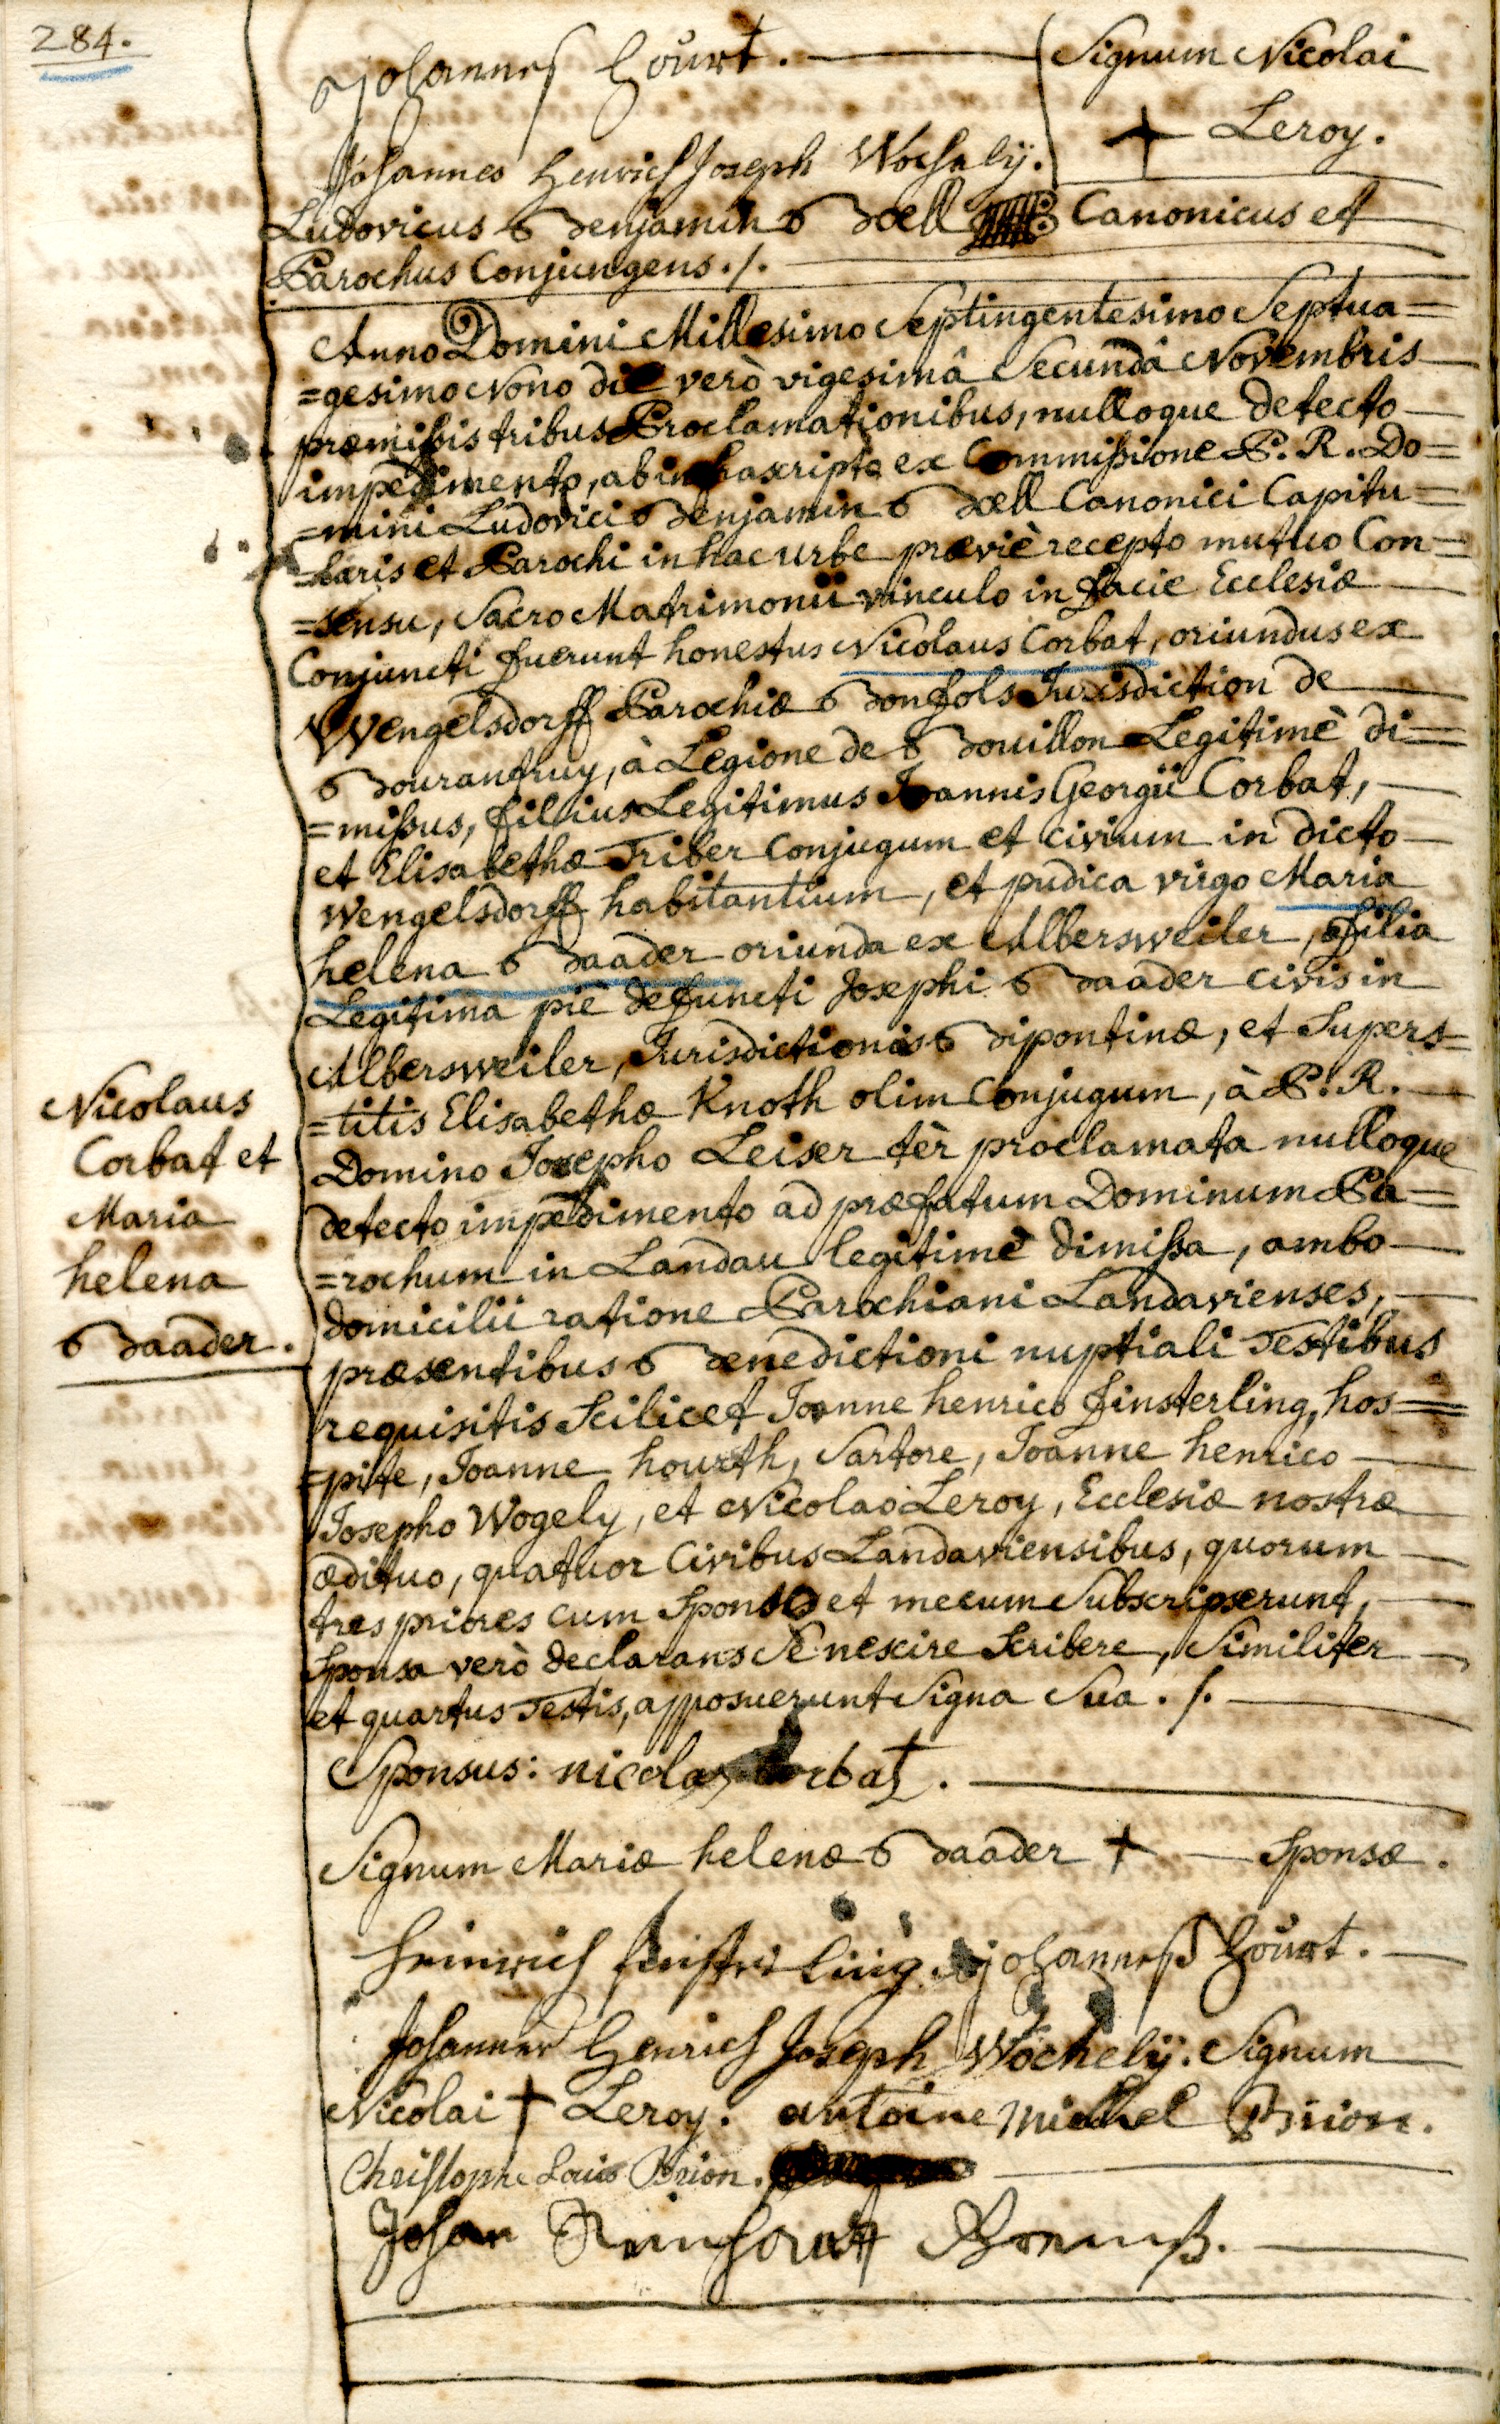 284.
Johannes Hourt. Signum Nicolai
+ Leroy.
Johannes Henrich Joseph Wochely.
Ludovicus Benjamin Boell Canonicus et
Parochus Conjungens ./.
Anno Domini Millesimo Septingentesimo Septua=
=gesimo Nono die verò vigesimâ Secundâ Novembris
præmissis tribus Proclamationibus, nulloque detecto
impedimento, ab infrascripto ex Commissione P. R. Do=
=mini Ludovici Benjamin Boell Canonici Capitu=
=laris et Parochi in hac urbe præviè recepto mutuo Con=
=sensu, Sacro Matrimonii vinculo in facie Ecclesiæ
Conjuncti fuerunt honestus Nicolaus Corbat, oriundus ex
Wengelsdorff Parochiæ Bonfols Jurisdiction de
Bourantruy, à Legione de Bouillon Legitimè di=
=missus, filius Legitimus Joannis Georgii Corbat,
et Elisabethæ Triber Conjugum et Civium in dicto
Wengelsdorff habitantium, et pudica virgo Maria
helena Baader oriunda ex Albersweiler, filia
Legitima piè defuncti Josephi Baader civis in
Albersweiler, Jurisdictionis Bipontinæ, et Supers=
=titis Elisabethæ Knoth olim Conjugum, à P. R.
Domino Josepho Leiser tèr proclamata nulloque
detecto impedimento ad præfatum Dominum Pa=
=rochum in Landau legitimè dimissa, ambo
domicilii ratione Parochiani Landavienses,
præsentibus Benedictioni nuptiali Testibus
requisitis Scilicet Joanne henrico Finsterling, hos=
=pite, Joanne hourth, Sartore, Joanne henrico
Josepho Wogely, et Nicolao Leroy, Ecclesiæ nostræ
ædituo, quatuor Civibus Landaviensibus, quorum
tres priores cum Sponso et mecum Subscripserunt,
Sponsa verò declarans Se nescire Scribere, Similiter
et quartus Testis, apposuerunt Signa Sua ./.
Nicolaus
Corbat et
Maria
helena
Baader.
Sponsus: nicolas Corbat.
Signum Mariæ helenæ Baader + Sponsæ.
Heinrich Finsterling Johannes Hourt.
Johannes Henrich Joseph Wochely. Signum
Nicolai + Leroy. antoine Michel Brion.
Christophe Louis Brion.
Johan